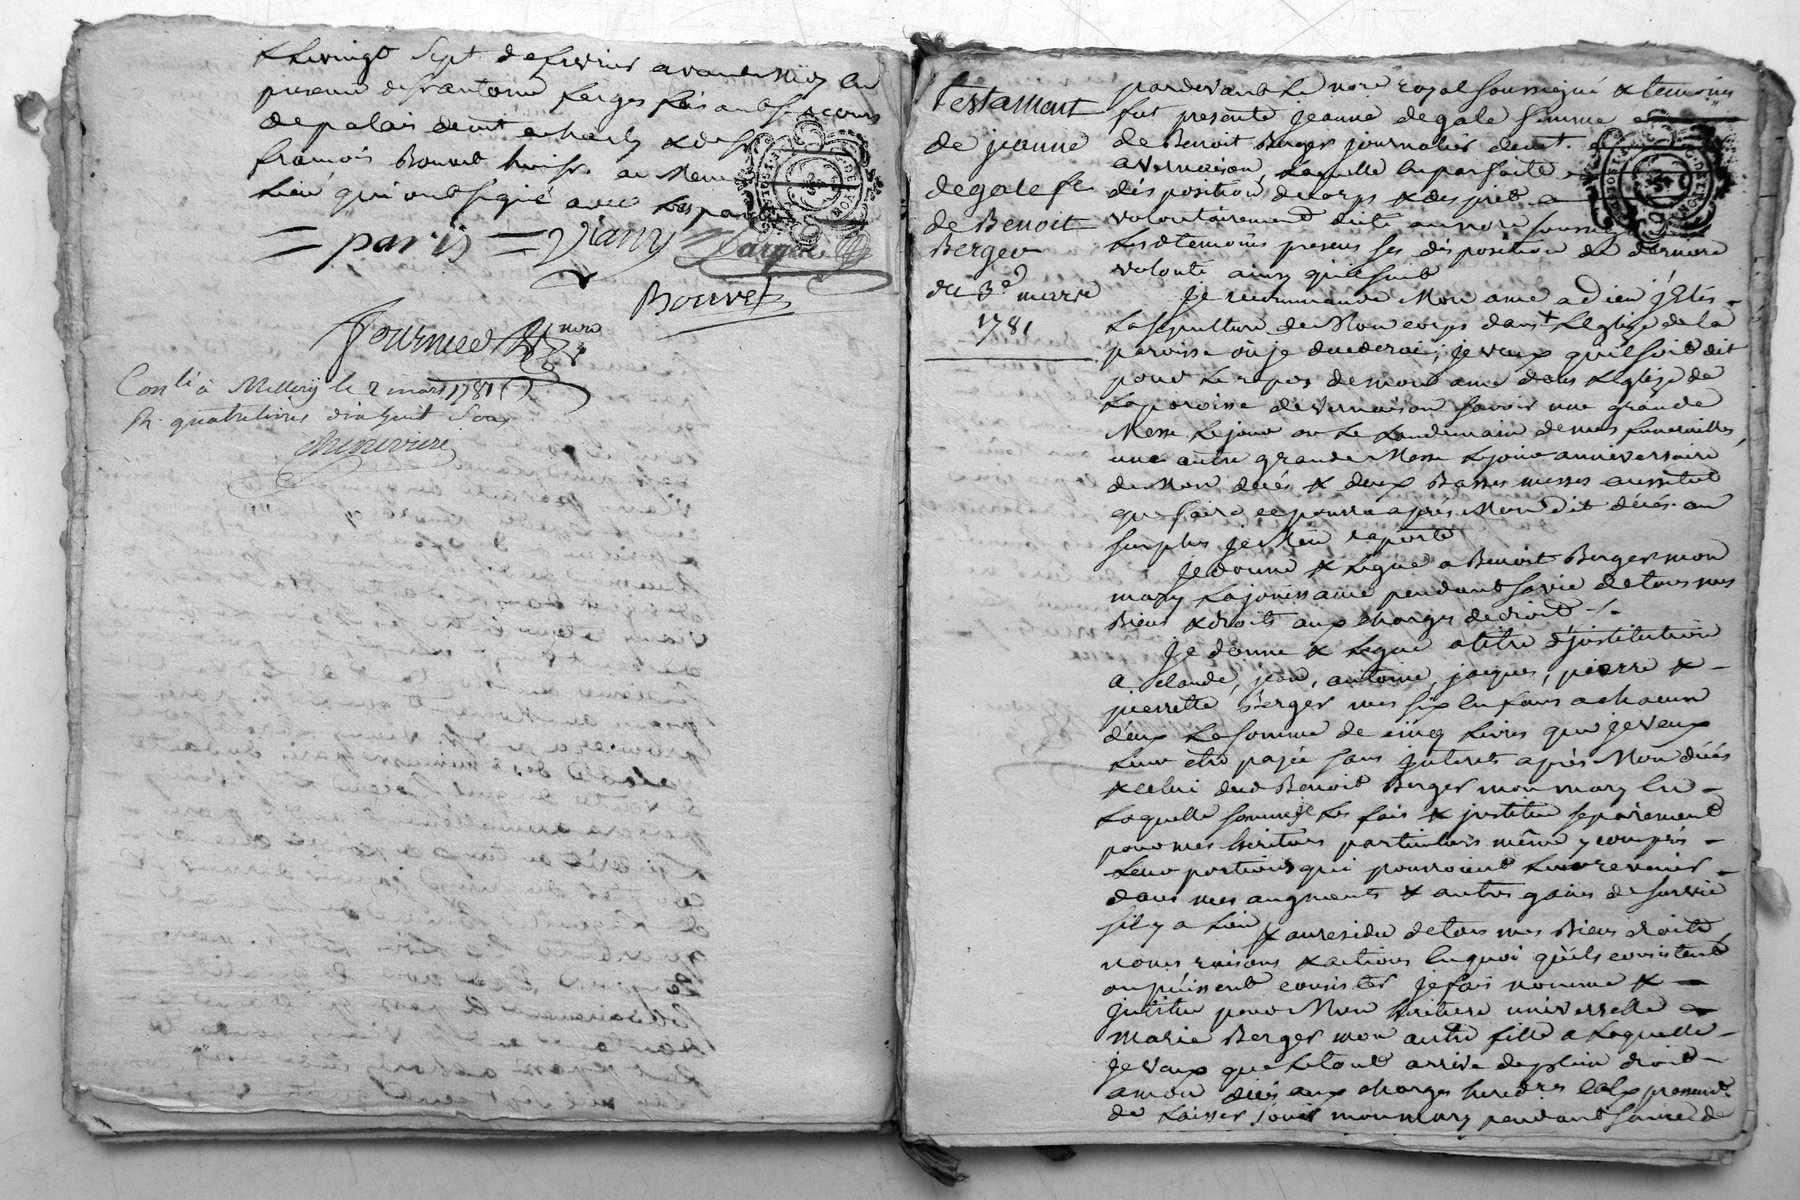 & le vingt sept de fevrier avant midy en
presence de s.r antoine farges fils aud. secours
de palais deurt a charly & de s.r
francois Bonnet huiss.r au meme
lieu qui ont signé avec les parties
= paris = Viany Farges
Bonnet
Fournier n.re
Con.lé à Millery le 2 mars 1781
R. quatre livres dix huit sous
testament
de jeanne
degale fe
de Benoit
Berger
du 3e mars
1781
pardevant le no.re royal soussigné & temoins
fut presente jeanne degale femme
de Benoit Berger journalier demt.
a vernaison, laquelle en parfaite
disposition de corps & desprit a
volontairement dit au no.re soussigné
les d. temoins presens ses disposition de derniere
volonté ainsy quil suit
Je recommande mon ame a dieu j'Elis
la sepulture de Mon corps dans Leglise de la
paroisse où je decederai; je veux quil soit dit
pour le repos de mon ame dans Leglise de
la paroisse de vernaison savoir une grande
Messe le jour ou le Landemain de mes funerailles,
une autre grande Messe le jour anniversaire
de Mon deces & deux Basses messes aussitot
que faire se pourra après Mon dit décés au
surplus je M'en raporte
Je donne & Legue a Benoit Berger mon
mary La jouissance pendant sa vie de tous mes
Biens & droits aux charges de droit
Je donne & Legue a titre d'jnstitution
a claude, jean, antoine, jacques, pierre &
pierrette Berger mes six enfans a chacun
d'eux La somme de cinq Livres que je veux
Leur etre payée sans jnterets après Mon décés
& celui dud Benoit Berger mon mary en
Laquelle somme je Les fais & jnstitue separement
pour mes heritiers particuliers même y compris
Leur portions qui pourroient Leur revenir
dans mes augments & autres gains de survie
s'il y a Lieu & au residu de tous mes Biens droits
noms raisons & actions en quoi qu'ils consistent
ou puissent consister je fais nomme &
jnstitue pour Mon heritiere universelle
Marie Berger mon autre fille a Laquelle
je veux que Le tout arrive de plein droit
a mon décés aux charges hered.res &
de Laisser jouir mon mary pendant sa vie de